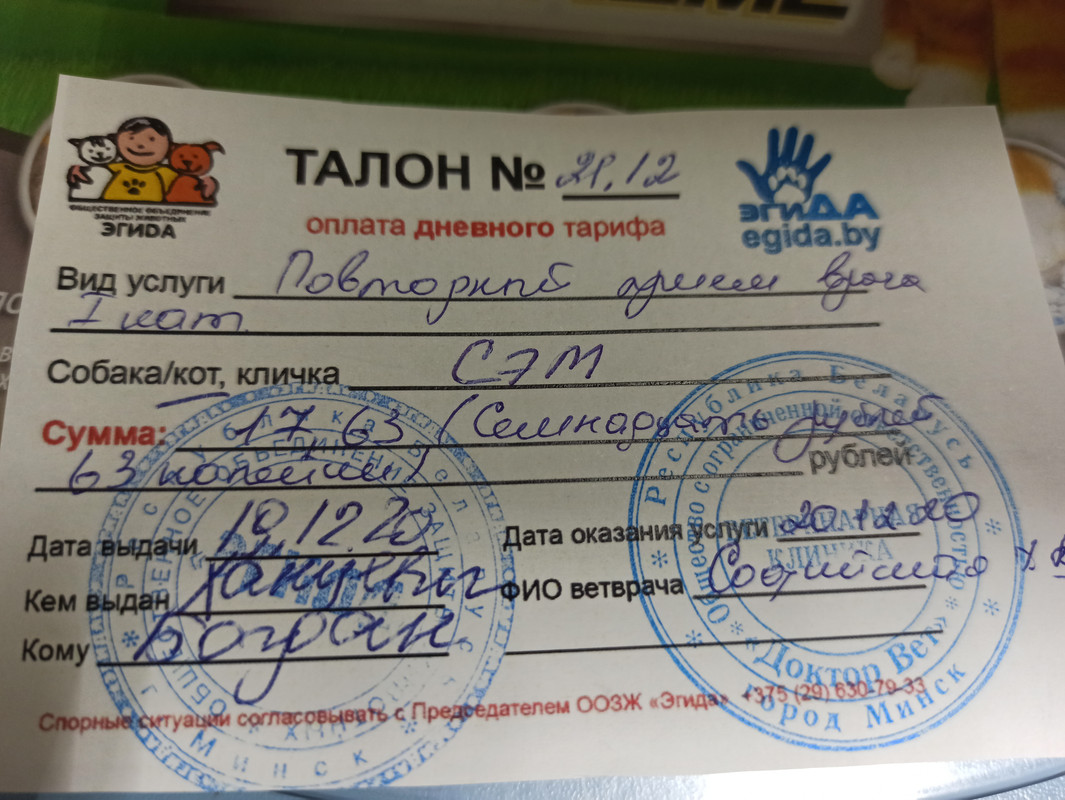 ОБЩЕСТВЕННОЕ ОБЪЕДИНЕНИЕ
ЗАЩИТЫ ЖИВОТНЫХ
ЭГИДА
ТАЛОН № 21.12
оплата дневного тарифа
эгиДА
egida.by
Вид услуги Повторный прием врача
I кат.
Собака/кот, кличка СЭМ
Сумма: 17,63 (Семнадцать рублей
63 копейки) рублей
Дата выдачи 19.12.20 Дата оказания услуги 20.12.20
Кем выдан ФИО ветврача
Кому Богдан
Спорные ситуации согласовывать с Председателем ООЗЖ «Эгида» +375 (29) 630-79-33
Республика Беларусь
Общество с ограниченной ответственностью
ВЕТЕРИНАРНАЯ
КЛИНИКА
«Доктор Вет»
город Минск